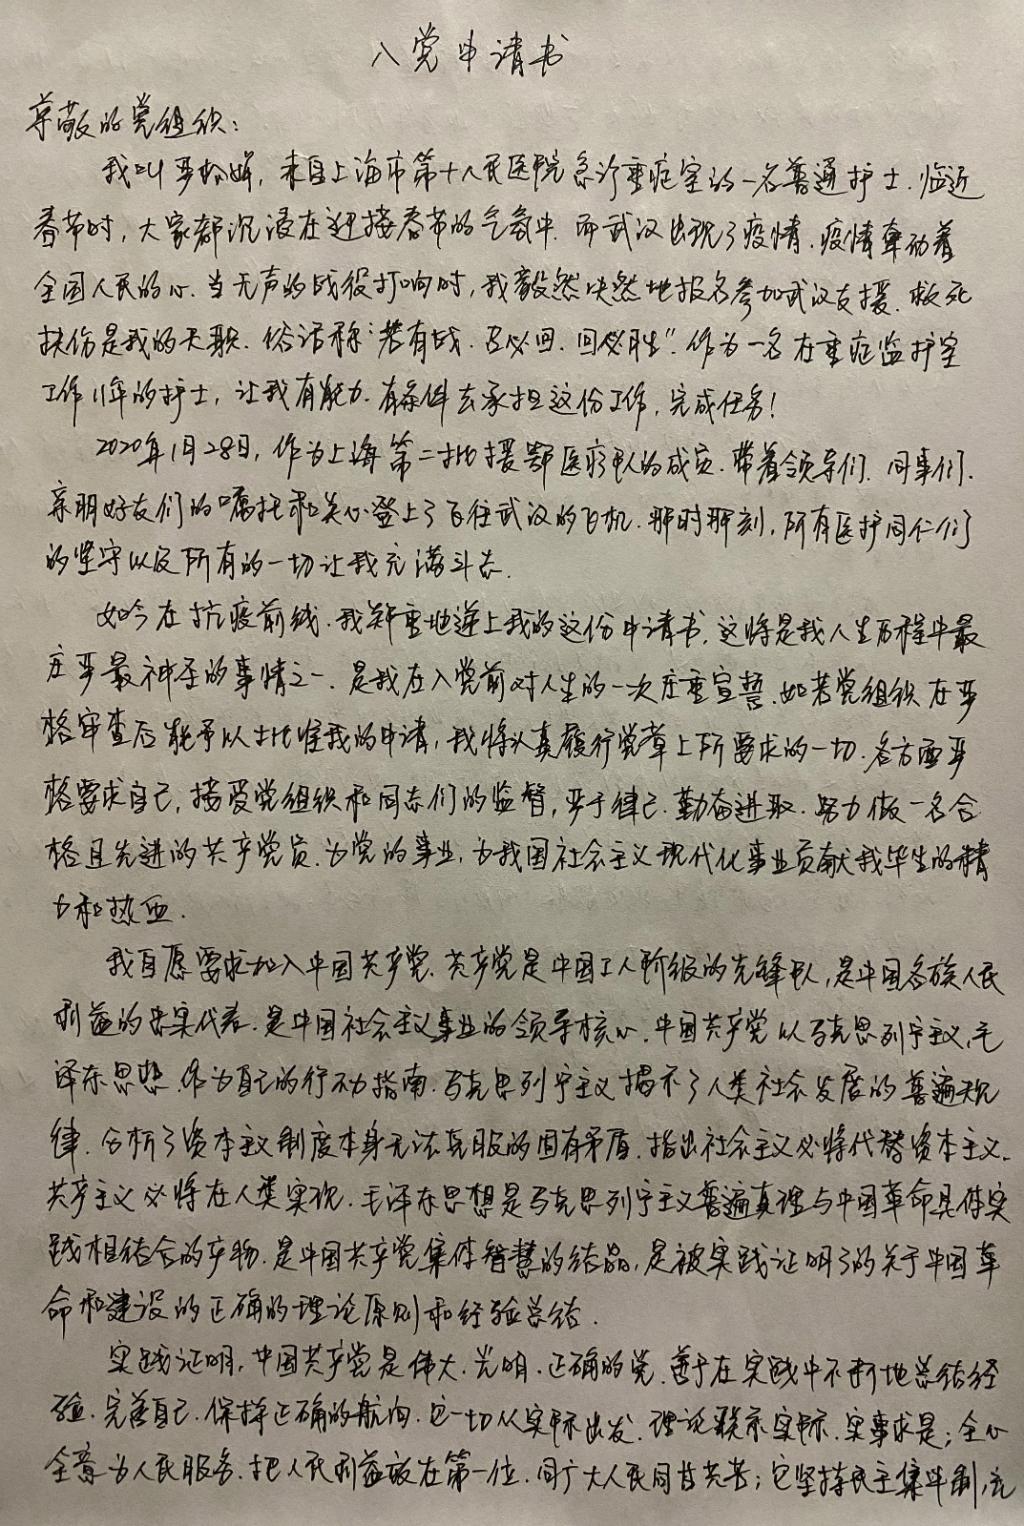 入党申请书
尊敬的党组织：
我叫严松娟，来自上海市第十人民医院急诊重症室的一名普通护士．临近
春节时，大家都沉浸在迎接春节的气氛中．而武汉出现了疫情．疫情牵动着
全国人民的心．当无声的战役打响时，我毅然决然地报名参加武汉支援．救死
扶伤是我的天职．俗话称“若有战．召必回．回必胜”．作为一名在重症监护室
工作11年的护士，让我有能力．有条件去承担这份工作，完成任务！
2020年1月28日，作为上海第二批援鄂医疗队的成员．带着领导们．同事们．
亲朋好友们的嘱托和关心登上了飞往武汉的飞机．那时那刻，所有医护同仁们
的坚守以及所有的一切让我充满斗志．
如今在抗疫前线．我郑重地递上我的这份申请书，这将是我人生历程中最
庄严最神圣的事情之一．是我在入党前对人生的一次庄重宣誓．如若党组织在严
格审查后能予以批准我的申请，我将认真履行党章上所要求的一切．各方面严
格要求自己，接受党组织和同志们的监督，严于律己．勤奋进取．努力做一名合
格且先进的共产党员．为党的事业，为我国社会主义现代化事业贡献我毕生的精
力和热血．
我自愿要求加入中国共产党．共产党是中国工人阶级的先锋队，是中国各族人民
利益的忠实代表．是中国社会主义事业的领导核心．中国共产党以马克思列宁主义，毛
泽东思想．作为自己的行动指南．马克思列宁主义揭示了人类社会发展的普遍规
律．分析了资本主义制度本身无法克服的固有矛盾．指出社会主义必将代替资本主义．
共产主义必将在人类实现．毛泽东思想是马克思列宁主义普遍真理与中国革命具体实
践相结合的产物．是中国共产党集体智慧的结晶，是被实践证明了的关于中国革
命和建设的正确的理论原则和经验总结．
实践证明，中国共产党是伟大．光明．正确的党．善于在实践中不断地总结经
验．完善自己．保持正确的航向．它一切从实际出发．理论联系实际．实事求是；全心
全意为人民服务．把人民利益放在第一位．同广大人民同甘共苦；它坚持民主集中制，